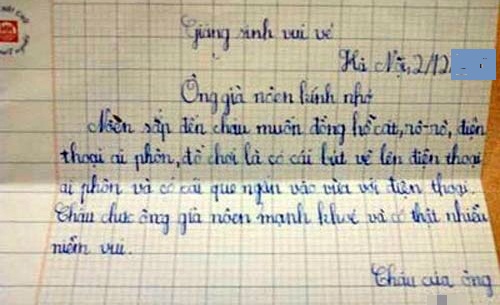 Giáng sinh vui vẻ
Hà Nội, 2/12
Ông già nôen kính nhớ
Nôen sắp đến cháu muốn đồng hồ cát, rô-rô, điện
thoại ai phôn, đồ chơi là có cái bút vẽ lên điện thoại
ai phôn và có cái que ngắn vào vừa với điện thoại.
Cháu chúc ông già nôen mạnh khoẻ và có thật nhiều
niềm vui.
Cháu của ông